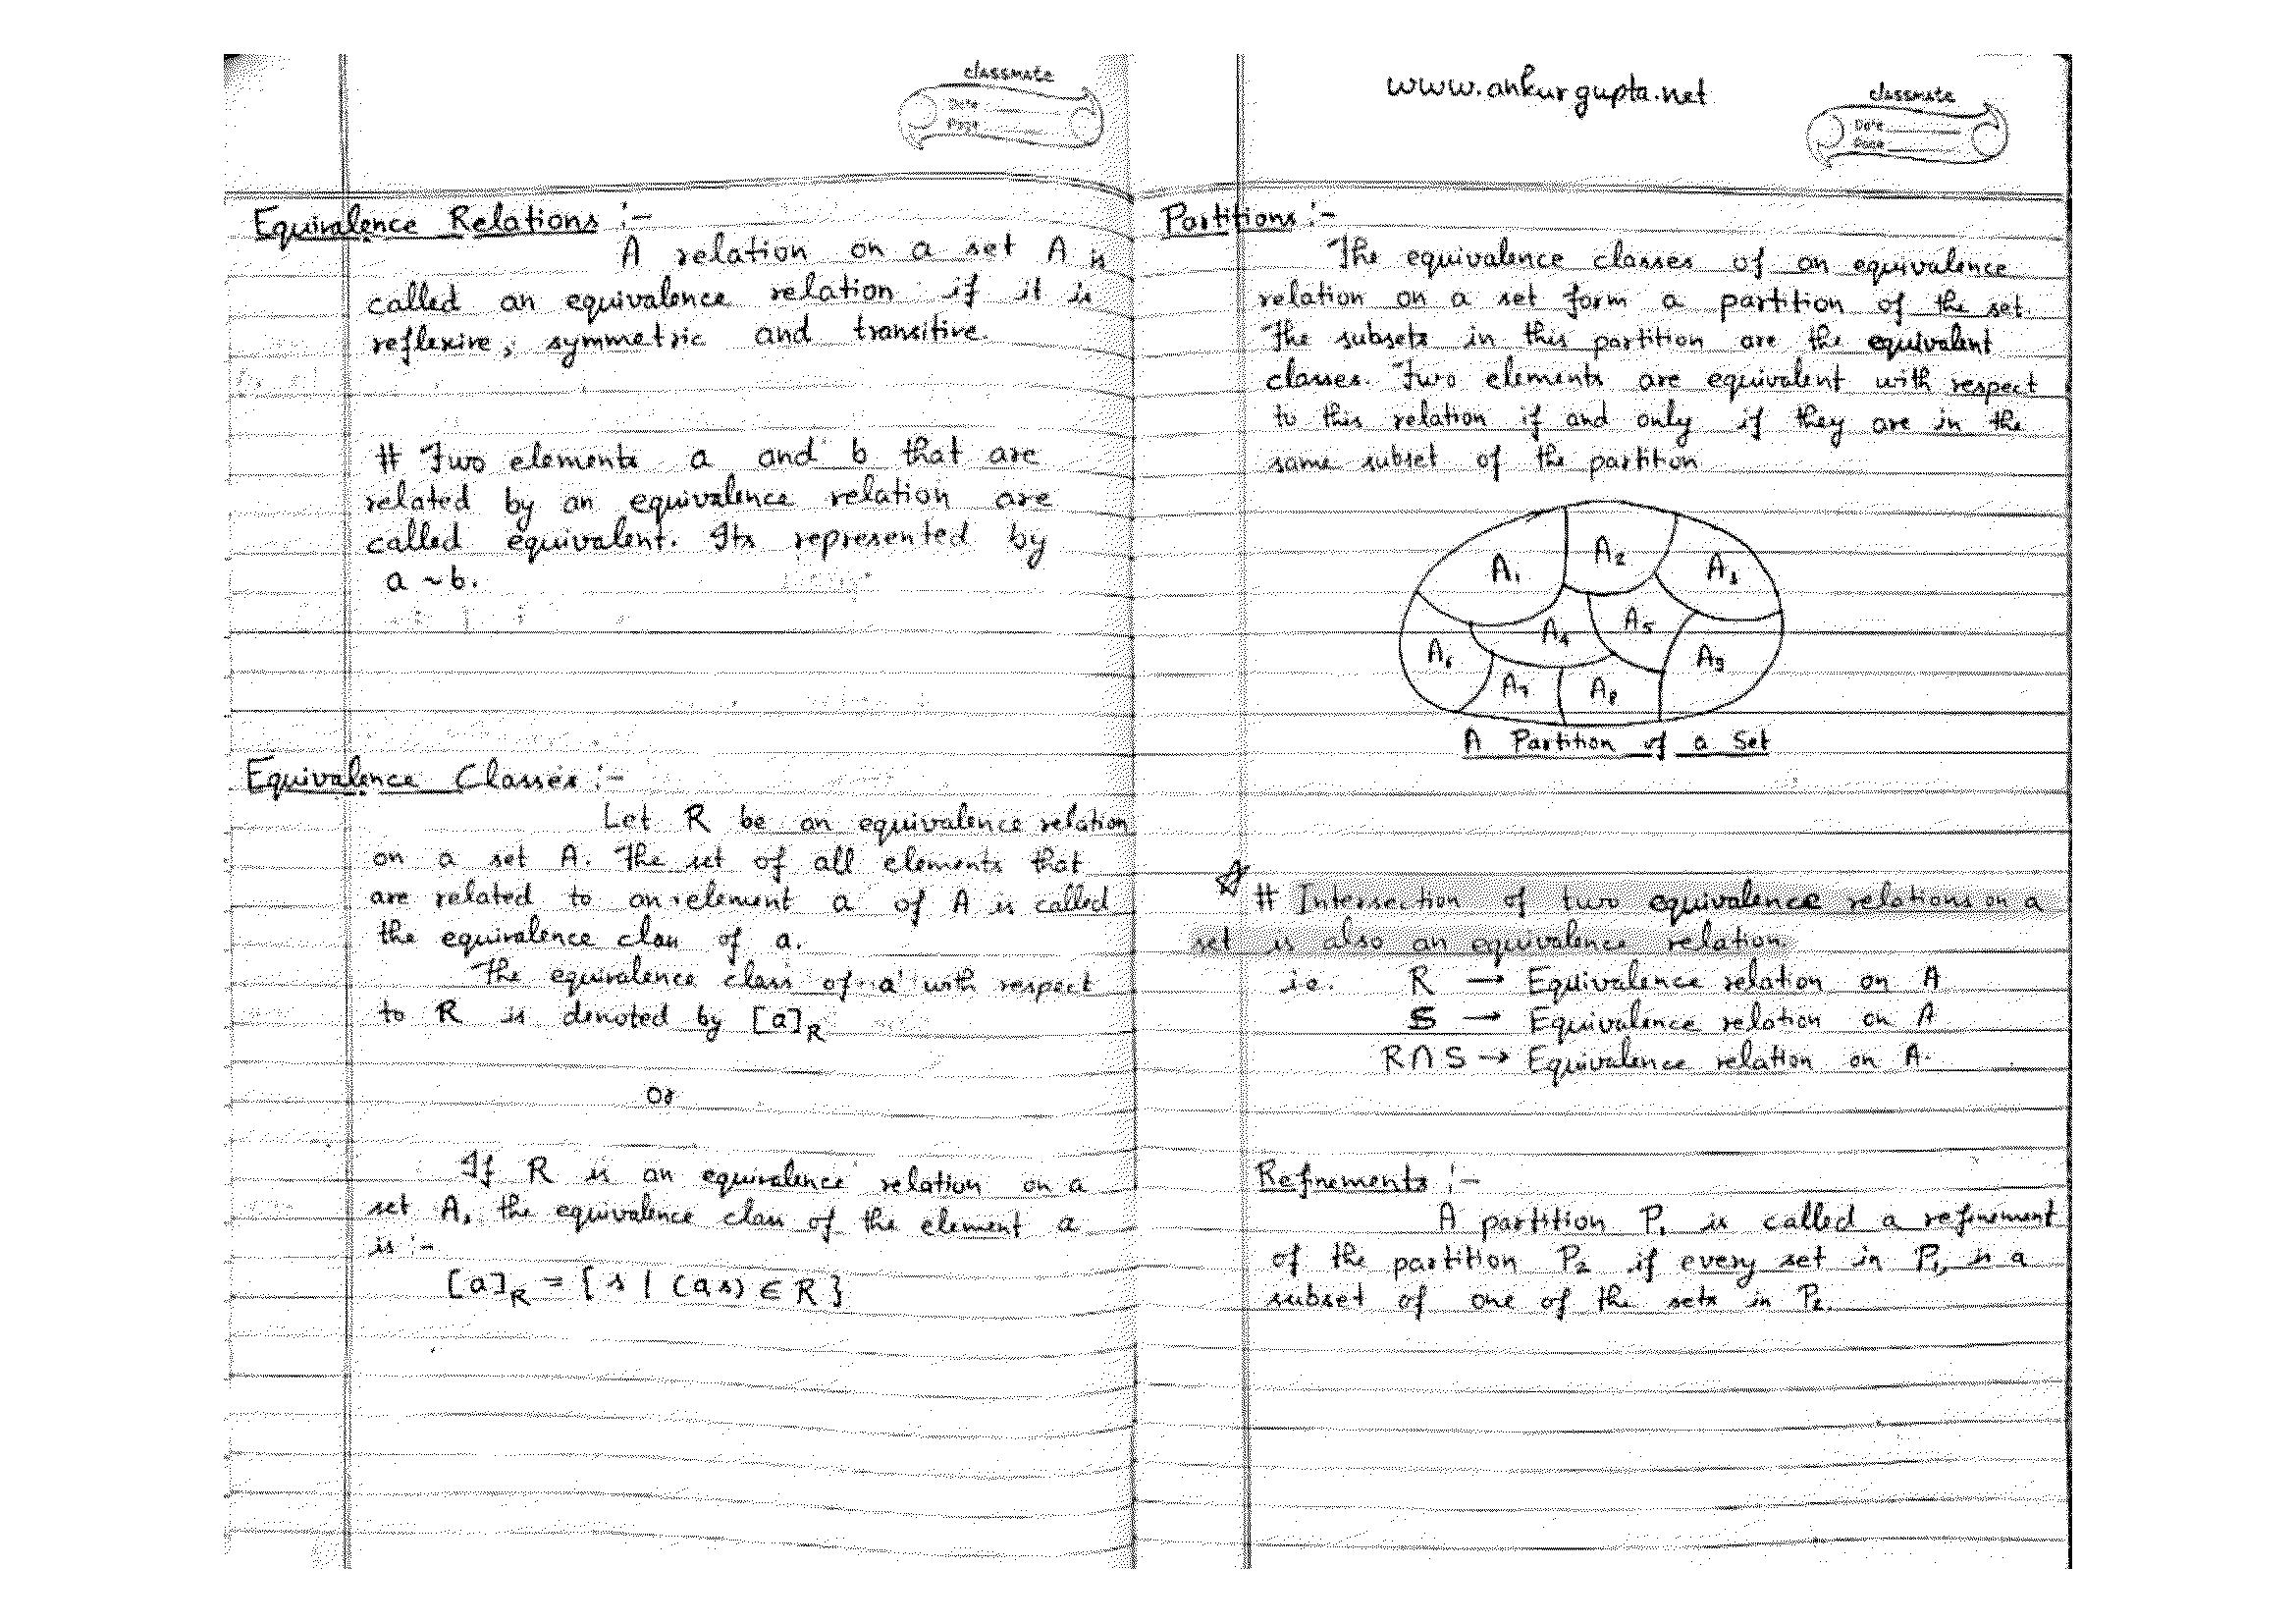 classmate
Date
Page
Equivalence Relations :-
A relation on a set A is
called an equivalence relation if it is
reflexive, symmetric and transitive.
# Two elements a and b that are
related by an equivalence relation are
called equivalent. Its represented by
a ~ b.
Equivalence Classes :-
Let R be an equivalence relation
on a set A. The set of all elements that
are related to an element a of A is called
the equivalence class of a.
The equivalence class of a with respect
to R is denoted by [a]R
or
If R is an equivalence relation on a
set A, the equivalence class of the element a
is :-
[a]R = { s | (a s) ∈ R }
www.ankurgupta.net
classmate
Date
Page
Partitions :-
The equivalence classes of an equivalence
relation on a set form a partition of the set.
The subsets in this partition are the equivalent
classes. Two elements are equivalent with respect
to this relation if and only if they are in the
same subset of the partition
A1 A2 A3
A4 A5
A6 A9
A7 A8
A Partition of a Set
# Intersection of two equivalence relations on a
set is also an equivalence relation.
i.e. R → Equivalence relation on A
S → Equivalence relation on A
R ∩ S → Equivalence relation on A.
Refinements :-
A partition P1 is called a refinement
of the partition P2 if every set in P1 is a
subset of one of the sets in P2.